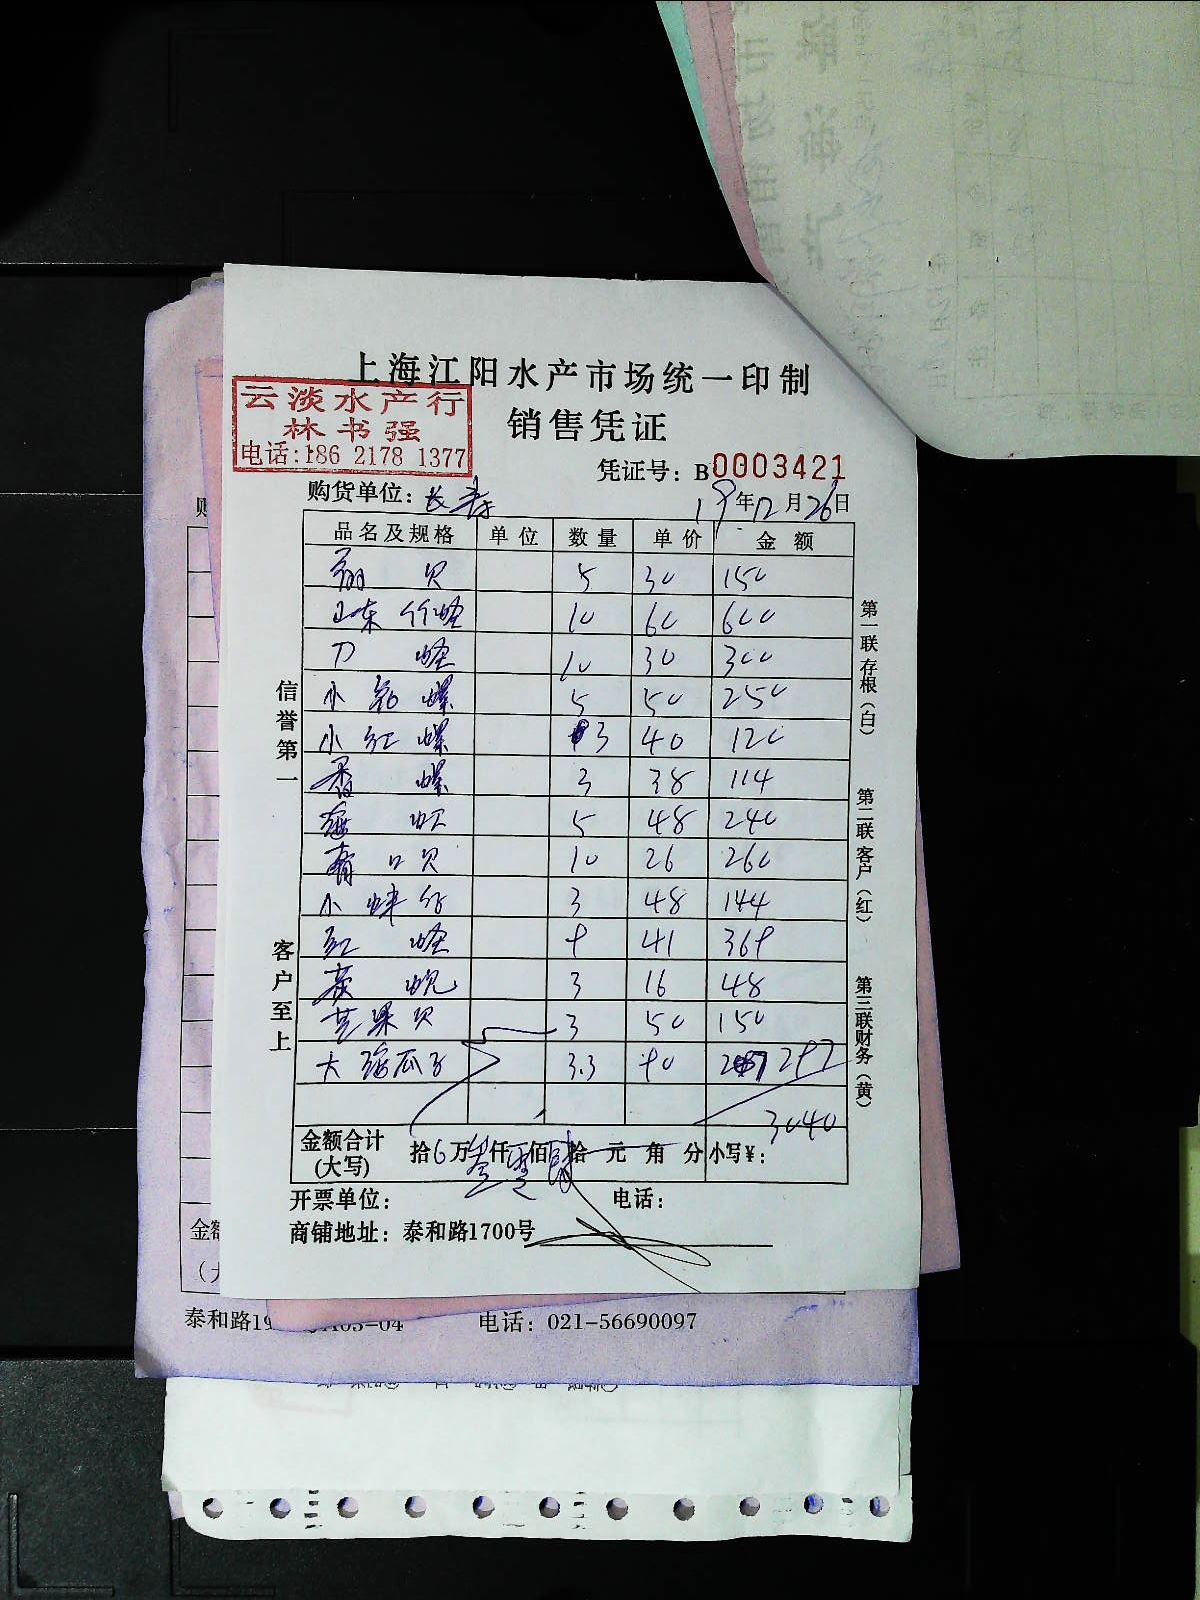 上海江阳水产市场统一印制
云淡水产行
林书强
电话:186 2178 1377
销售凭证
凭证号: B0003421
购货单位: 长寿 19年12月26日
品名及规格 单位 数量 单价 金额
贝 5 30 150
山东竹蛏 10 60 600
刀 蛏 10 30 300
小 螺 5 50 250
小 红 螺 3 40 120
香 螺 3 38 114
5 48 240
青口贝 10 26 260
小 3 48 144
红 蛏 9 41 369
3 16 48
芒果贝 3 50 150
大 瓜子 3.3 90 297
3040
金额合计 (大写) 拾 万叁仟零佰肆拾 元 角 分 小写¥:
开票单位: 电话:
商铺地址: 泰和路1700号
信誉第一
客户至上
第一联存根(白)
第二联客户(红)
第三联财务(黄)
泰和路19
电话: 021-56690097